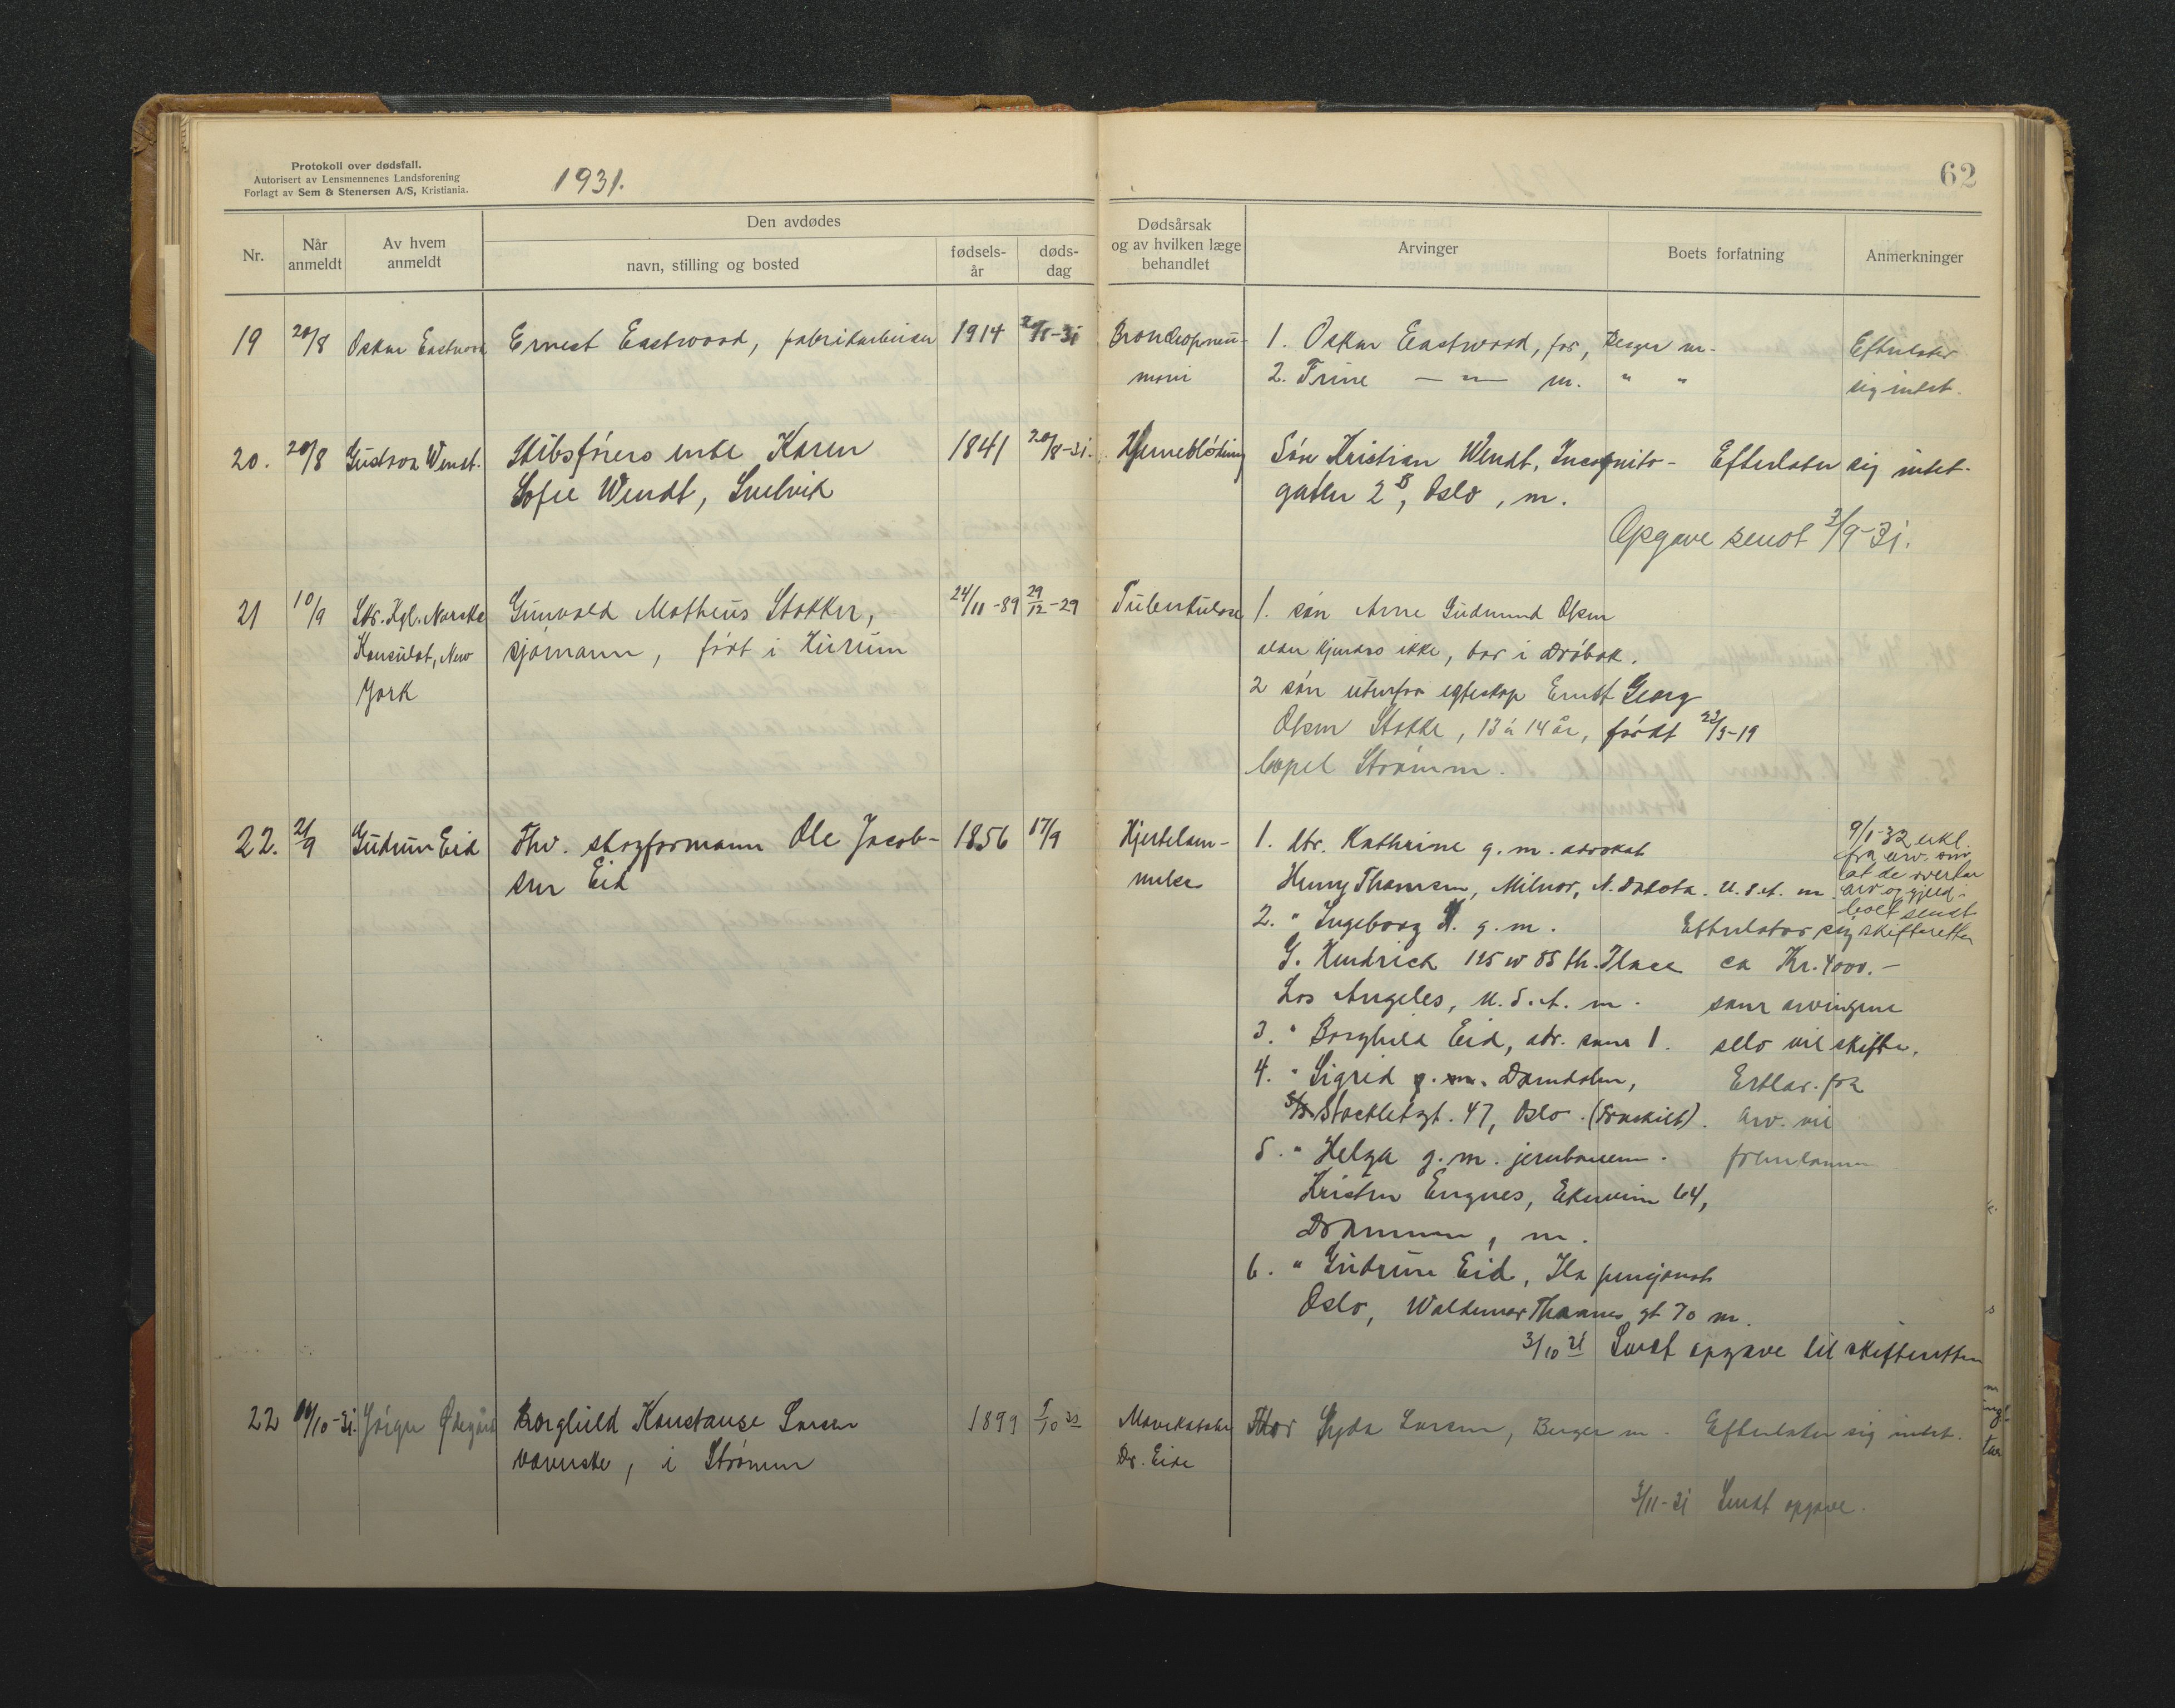 Protokoll over dødsfall.
Autorisert av Lensmennenes Landsforening
Forlagt av Sem & Stenersen A/S, Kristiania.
1931.
62
Nr.
Når anmeldt
Av hvem anmeldt
Den avdødes
navn, stilling og bosted
fødsels-år
døds-dag
Dødsårsak og av hvilken læge behandlet
Arvinger
Boets forfatning
Anmerkninger
19 20/8 Oskar Eastwood Ernest Eastwood, fabrikarbeider 1914 Bronkopneu- 1. Oskar Eastwood, far, Berger m. Efterlater
moni 2. Trine — " — m. " " sig intet.
20. 20/8 Gustava Wendt. Skibsførers enke Karen 1841 20/8-31. Hjerneblødning Søn Kristian Wendt, Incognito- Efterlater sig intet.
Sofie Wendt, Svelvik gaten 2 B, Oslo, m.
Opgave sendt 3/9-31.
21 10/9 Skr. Kgl. Norske Gunvald Matheus Stokker, 24/11-89 29/12-29 Tuberkulose 1. søn Arne Gudmund Olsen
Konsulat, New sjømann, født i Hurum alder kjendes ikke, bor i Drøbak.
York 2 søn utenfor egteskap Ernst Georg
Olsen Stokke, 13 à 14 år, født 22/3-19
bopel Strømm.
22. 21/9 Gudrun Eid Fhv. skogformann Ole Jacob- 1856 17/9 Hjertelam- 1. dtr. Kathrine g. m. advokat
sen Eid melse Henry Thomsen, Milnor, N. Dakota. U.S.A. m
9/1-32 erkl.
fra arv. om
at de overtar
arv og gjeld.
boet sendt
skifteretten
2. " Ingeborg g. m. Efterlater sig
G. Kendrick 125 W 85 th. Place ca Kr. 4000.-
Los Angeles, U.S.A. m. som arvingene
3. " Borghild Eid, adr. som 1. selv vil skifte.
4. " Sigrid g. m. Damdalen, Erklær. fra
Stockfletgt. 47, Oslo. (Fraskilt). arv. vil
5. " Helga g. m. jernbanem. fremkomme
Kristen Engnes, Ekerveien 64,
Drammen, m.
6. " Gudrun Eid, Ila pensjonat
Oslo, Waldemar Thranes gt 70 m.
3/10 31 Sendt opgave til skifteretten
22 10/10-31. Jørgen Ødegård Borghild Konstanse Larsen 1899 5/10 31 Mavekatarr Mor Gyda Larsen, Berger m. Efterlater sig intet.
væverske, i Strømm Dr. Eide
3/11-31 Sendt opgave.